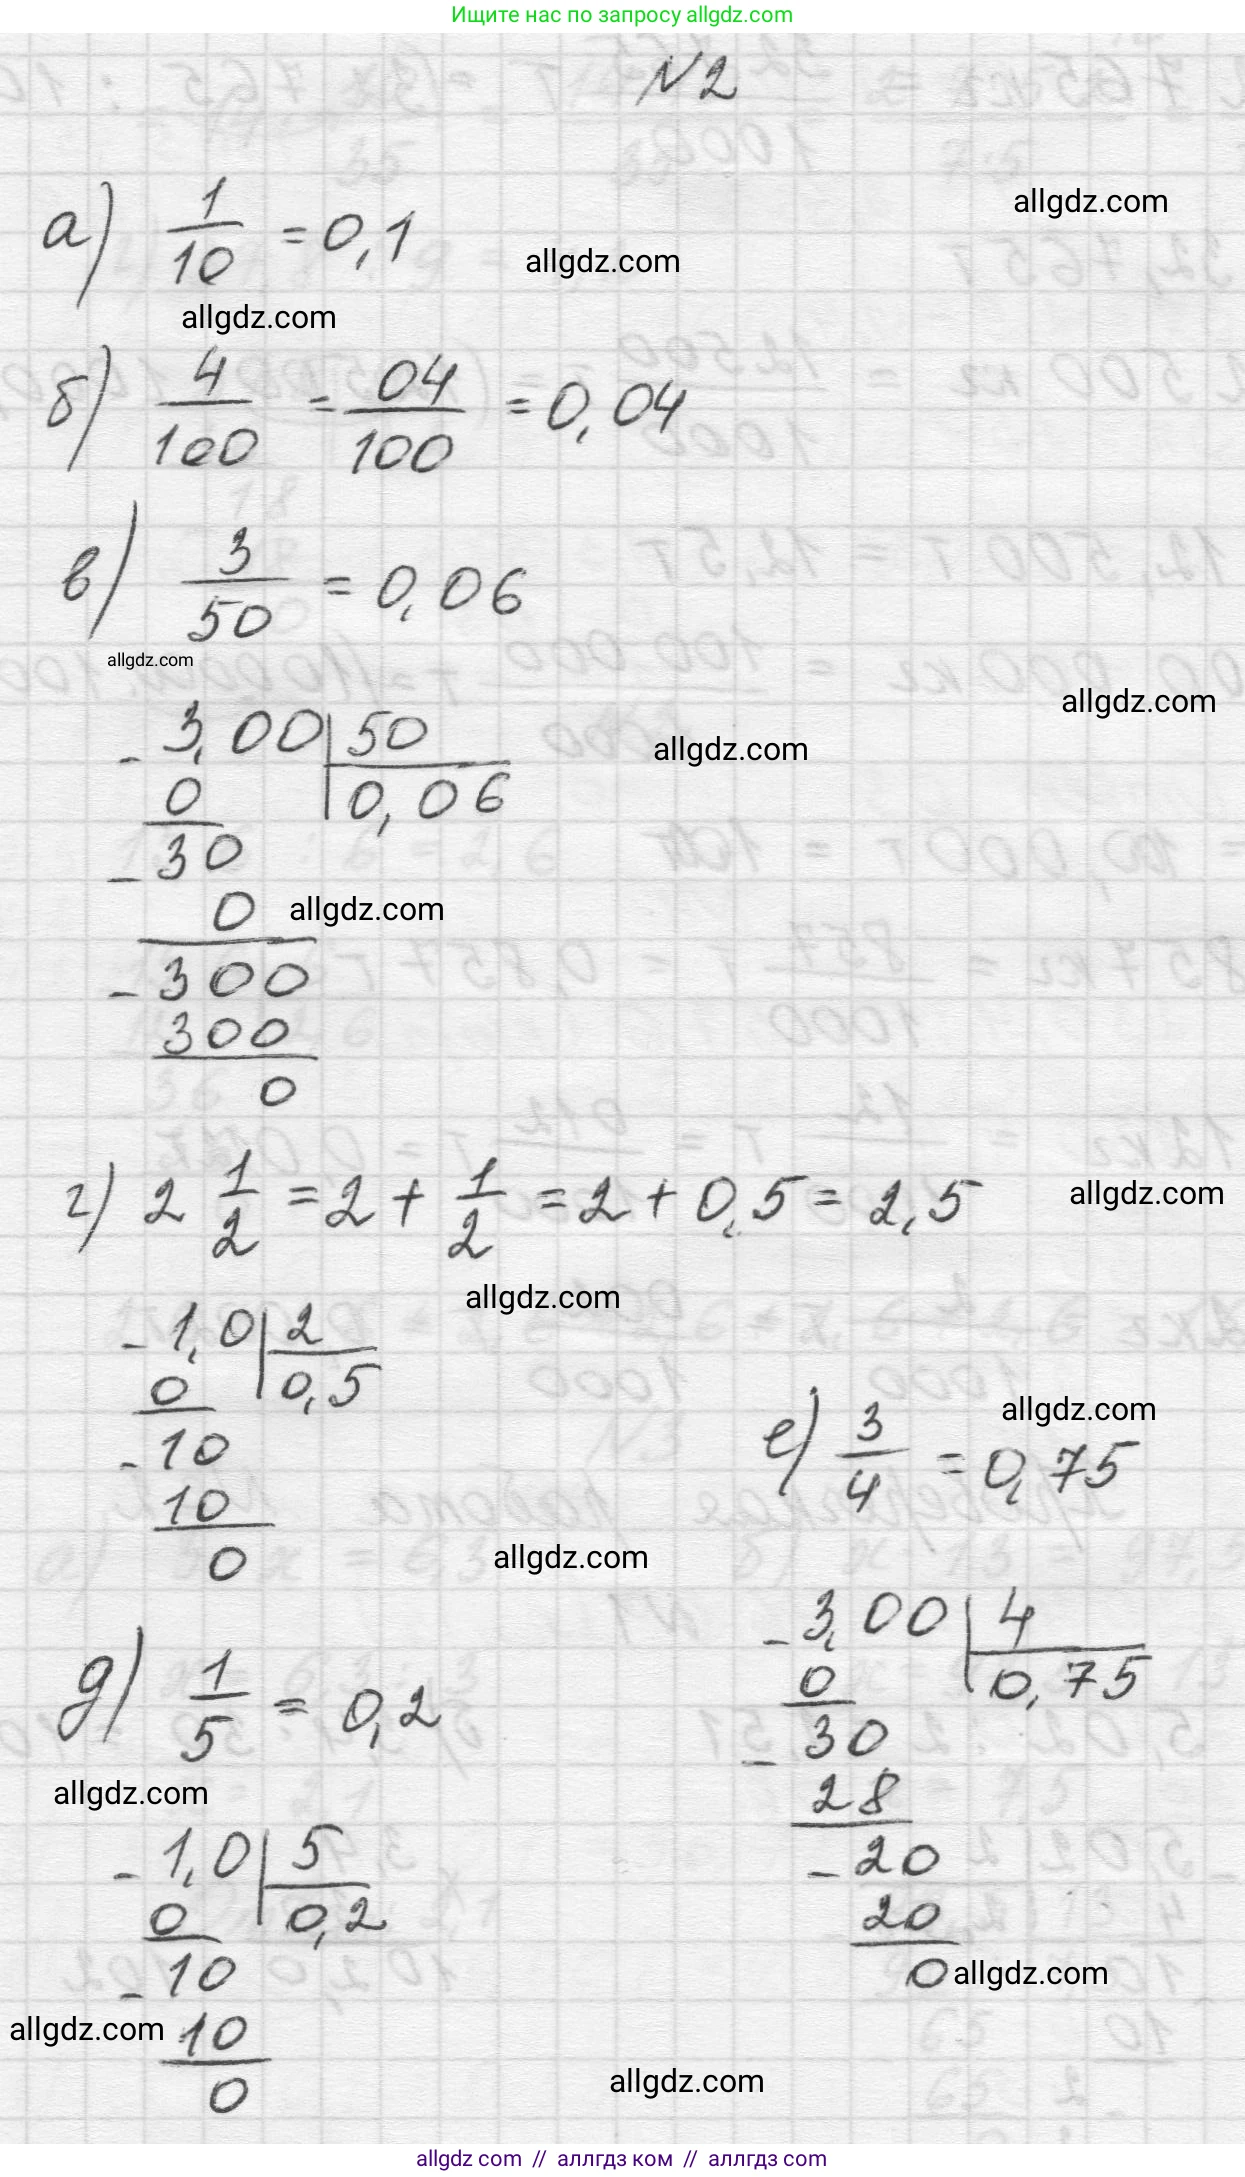 Ищите нас по запросу allgdz.com
№2
а) 1/10 = 0,1
allgdz.com
allgdz.com
allgdz.com
б) 4/100 = 04/100 = 0,04
в) 3/50 = 0,06
allgdz.com
allgdz.com
- 3,00 | 50
allgdz.com
0 | 0,06
- 30
0
allgdz.com
- 300
300
0
г) 2 1/2 = 2 + 1/2 = 2 + 0,5 = 2,5
allgdz.com
allgdz.com
- 1,0 | 2
0 | 0,5
- 10
10
0
allgdz.com
е) 3/4 = 0,75
allgdz.com
- 3,00 | 4
0 | 0,75
- 30
28
- 20
20
0
allgdz.com
д) 1/5 = 0,2
allgdz.com
- 1,0 | 5
0 | 0,2
- 10
allgdz.com
10
0
allgdz.com
allgdz com // аллгдз ком // аллгдз com